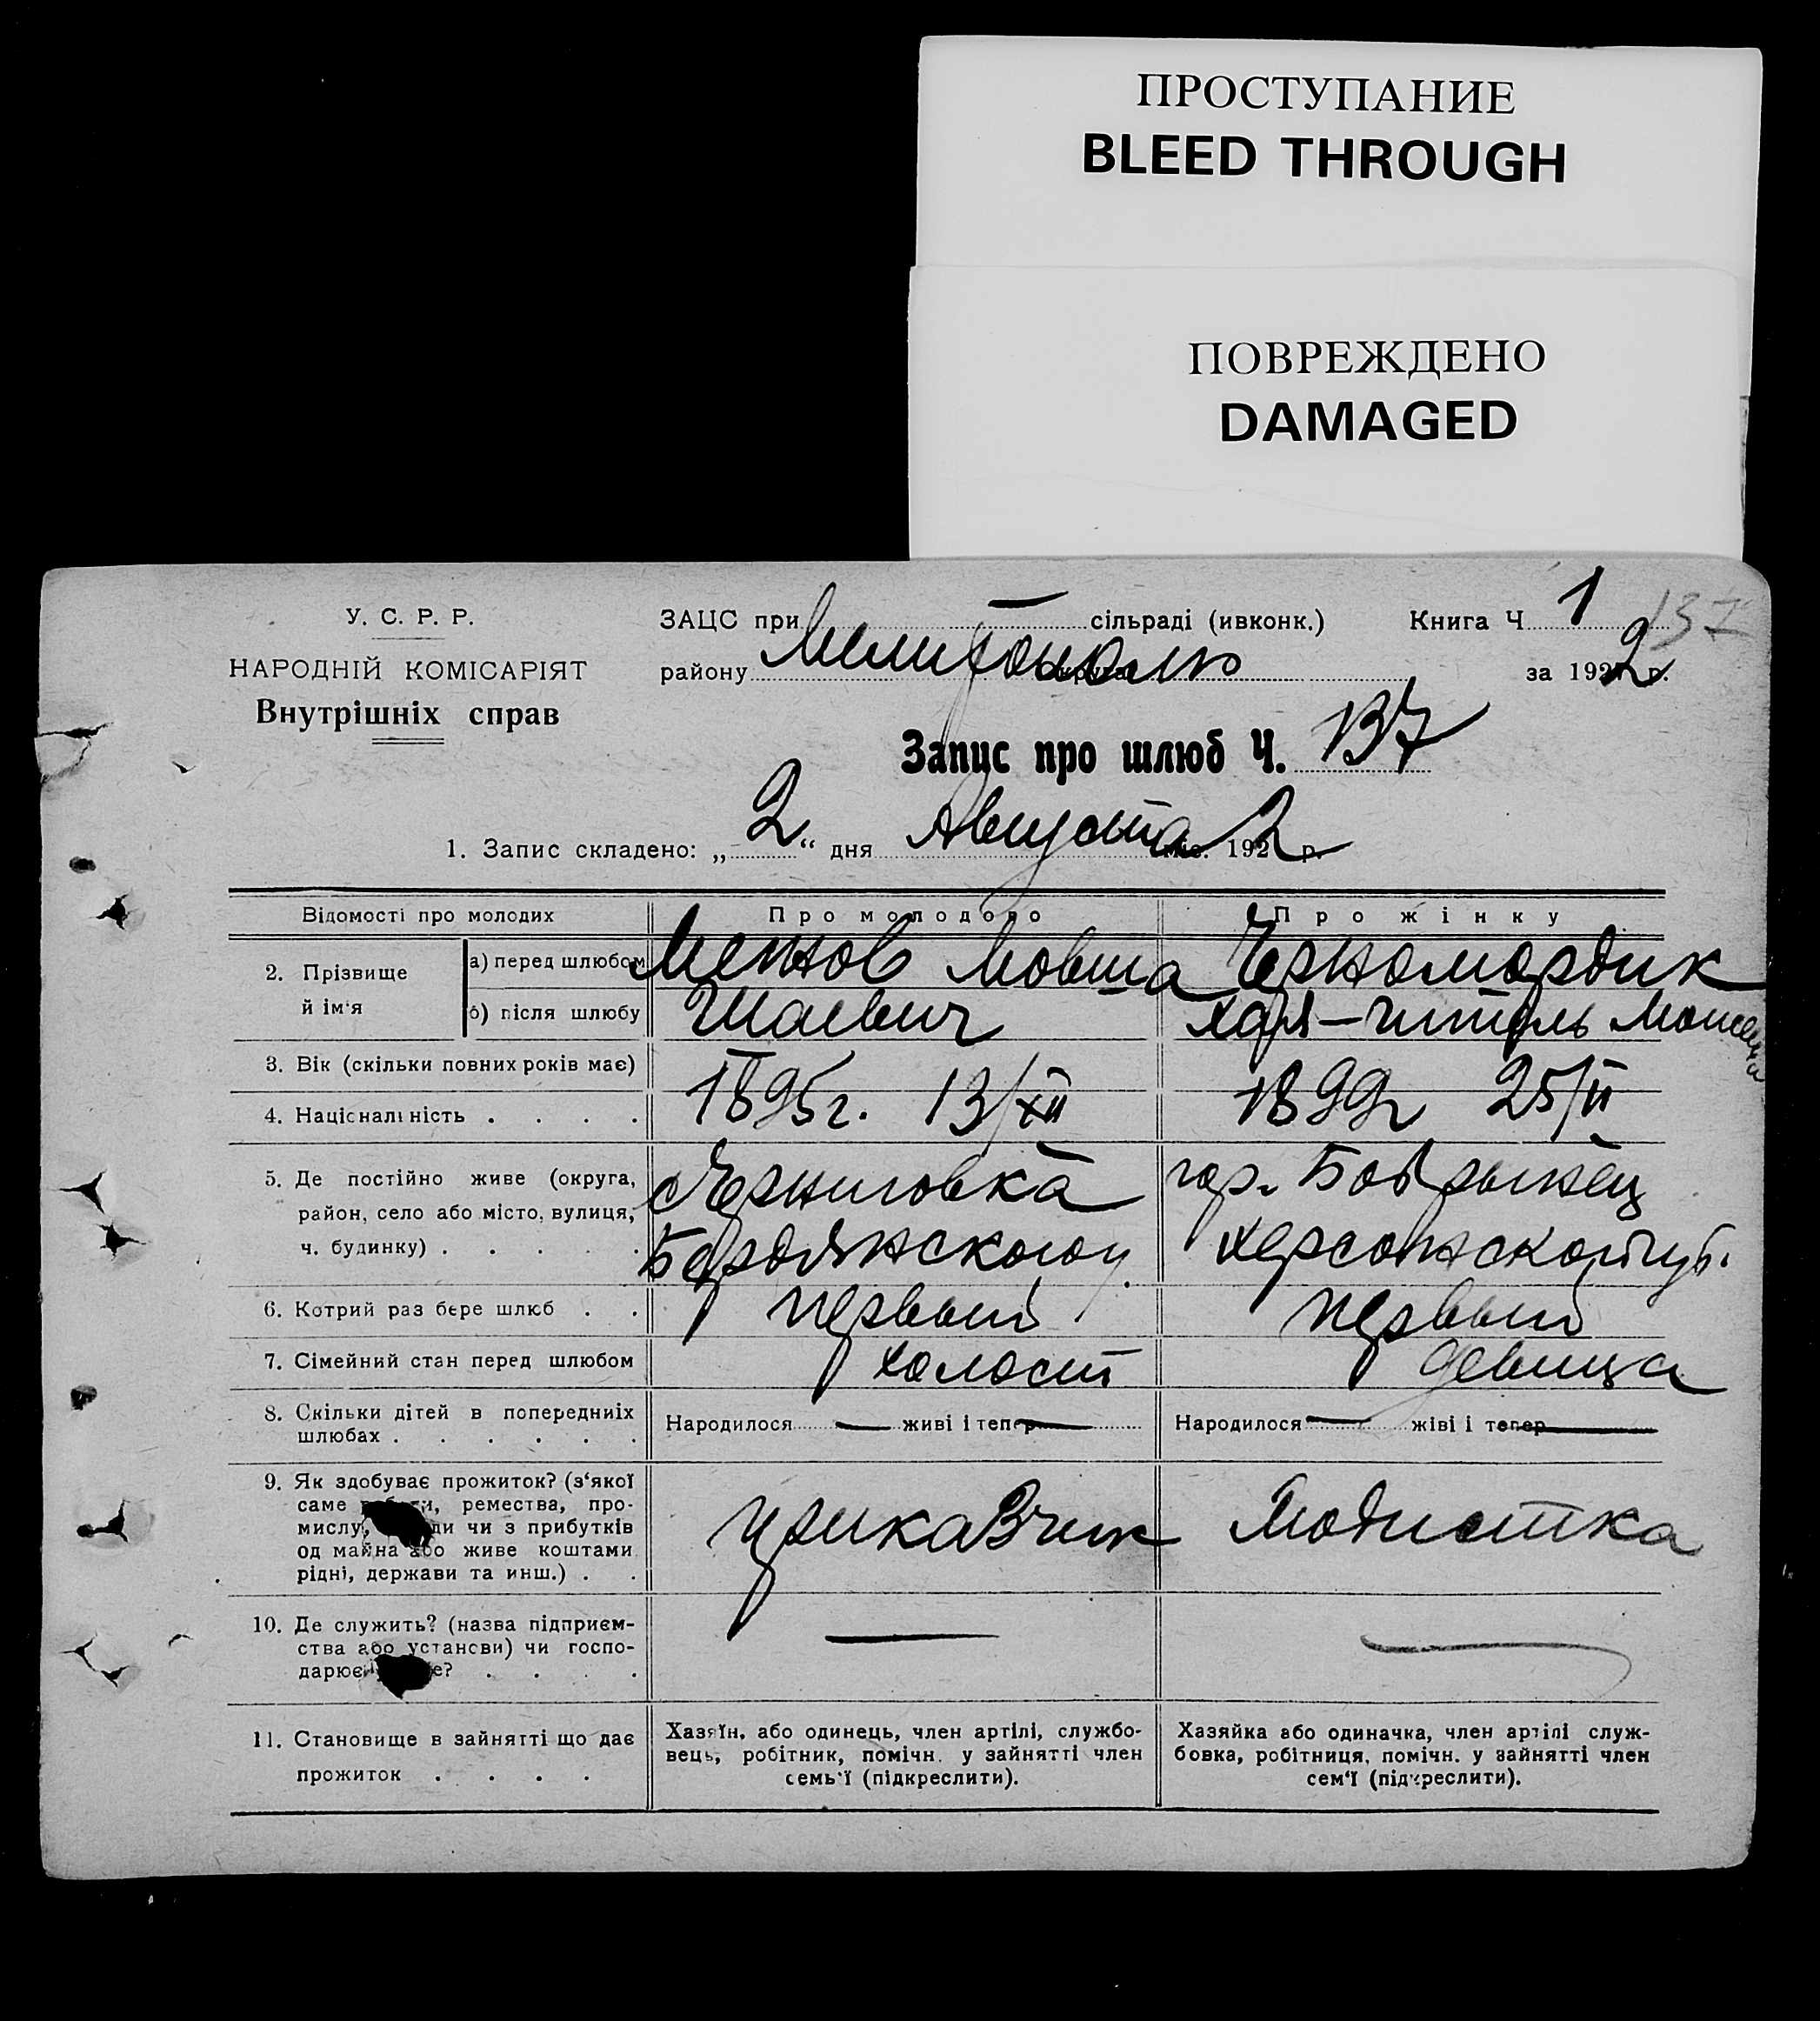 ПРОСТУПАНИЕ
BLEED THROUGH
ПОВРЕЖДЕНО
DAMAGED
У. С. Р. Р.
НАРОДНІЙ КОМІСАРІЯТ
Внутрішніх справ
ЗАЦС при — сільраді (ивконк.) Книга Ч 1 137
району Мелитополь за 1922 р.
Запис про шлюб Ч. 137
1. Запис складено: „2“ дня Августа міс. 1922 р.
Відомості про молодих Про молодого Про жінку
2. Прізвище й ім‘я
а) перед шлюбом Менжов Мовша Черномордик
б) після шлюбу Шаевич Хая-Читель
3. Вік (скільки повних років має)
4. Національність . . . . 1895г. 13/XII 1899г 25/II
5. Де постійно живе (округа, Черниговка гор. Бобринец
район, село або місто, вулиця,
ч. будинку) . . . . . Бердянского у. Херсонской губ.
6. Котрий раз бере шлюб . . первый первый
7. Сімейний стан перед шлюбом холост девица
8. Скільки дітей в попередниіх
шлюбах . . . . . .
Народилося — живі і тепер — Народилося — жіві і тепер —
9. Як здобуває прожиток? (з‘якої
саме ремества, про-
мислу, чи з прибутків
од майна або живе коштами
рідні, держави та инш.) . .
приказчик Модистка
10. Де служить? (назва підприєм-
ства або установи) чи госпо-
дарює
— —
11. Становище в зайнятті що дає
прожиток . . . .
Хазяїн, або одинець, член артілі, службо-
вець, робітник, помічн. у зайнятті член
семь‘ї (підкреслити).
Хазяйка або одиначка, член артілі служ-
бовка, робітниця, помічн. у зайнятті член
сем‘ї (підкреслити).